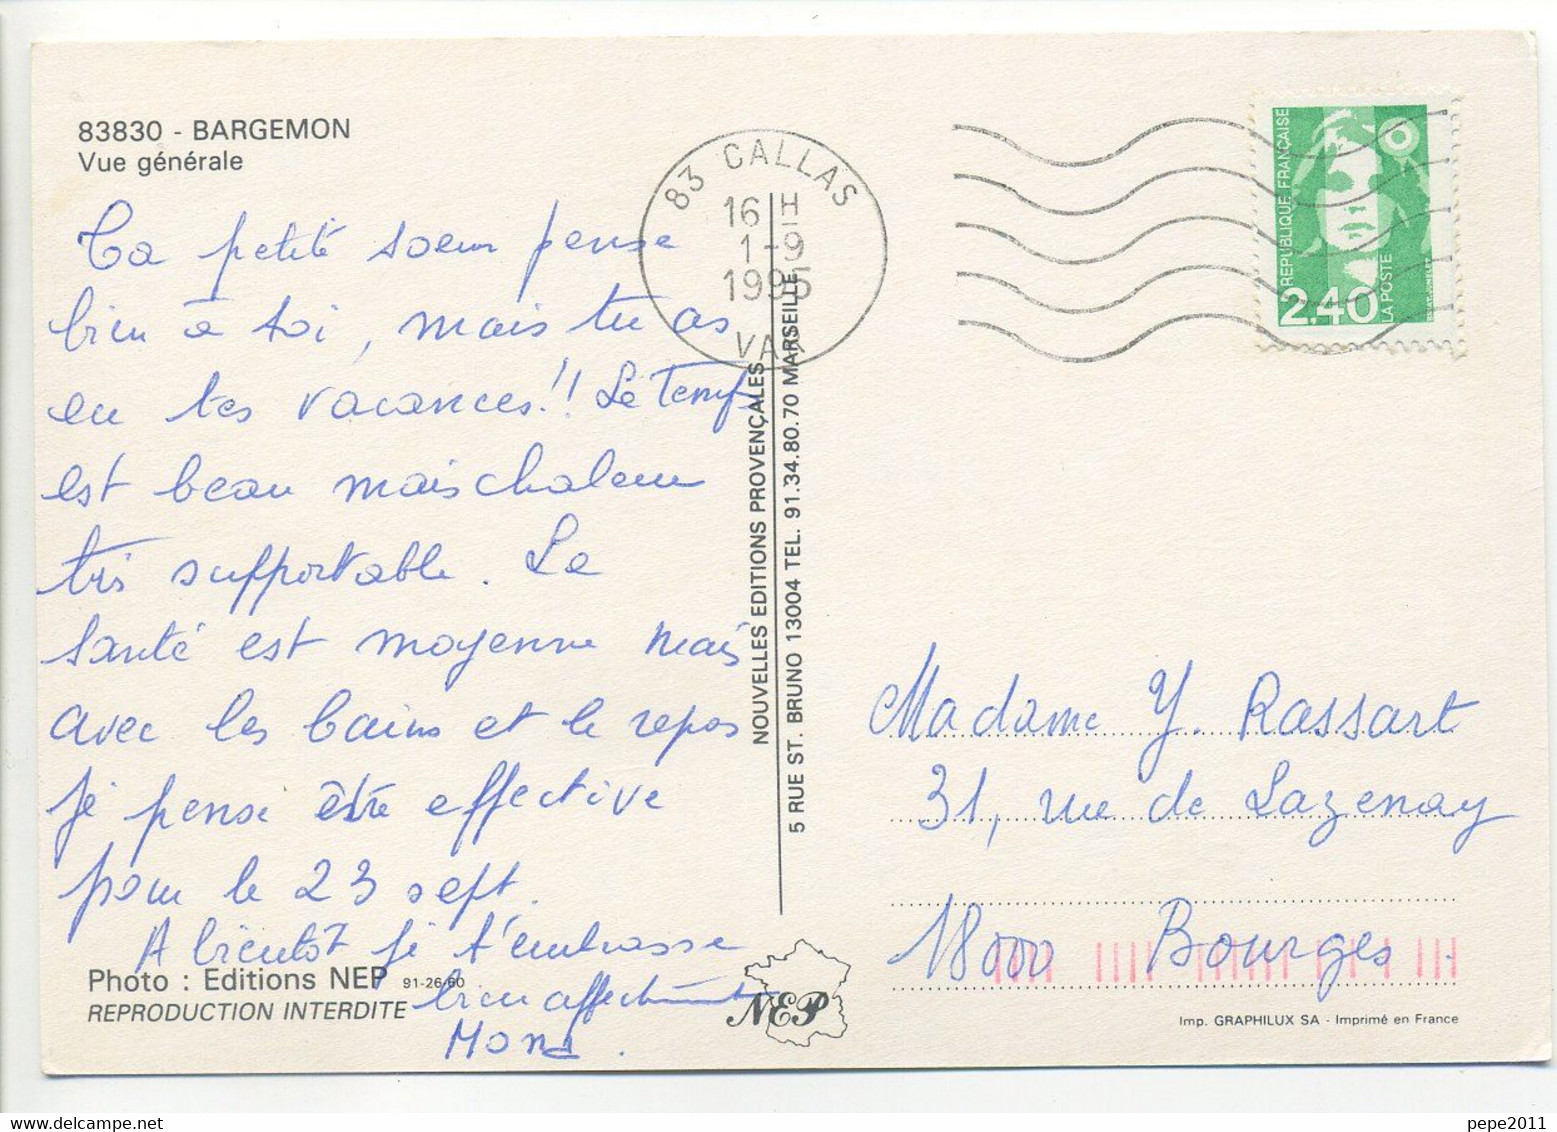 83830 - BARGEMON
Vue générale
Ta petite soeur pense
bien à toi, mais tu as
eu tes vacances!! Le Temps
est beau mais chaleur
très supportable. La
santé est moyenne mais
avec les bains et le repos
je pense être effective
pour le 23 sept.
A bientôt je t'embrasse
bien affectueusement
Photo : Editions NEP 91-26-60
REPRODUCTION INTERDITE
83 CALLAS
16 H
1-9
1995
VAR
NOUVELLES EDITIONS PROVENÇALES
5 RUE ST. BRUNO 13004 TEL. 91.34.80.70 MARSEILLE
NEP
REPUBLIQUE FRANÇAISE
2,40
LA POSTE
Madame Y. Rassart
31, rue de Lazenay
18000 Bourges.
Imp. GRAPHILUX SA - Imprimé en France
pepe2011